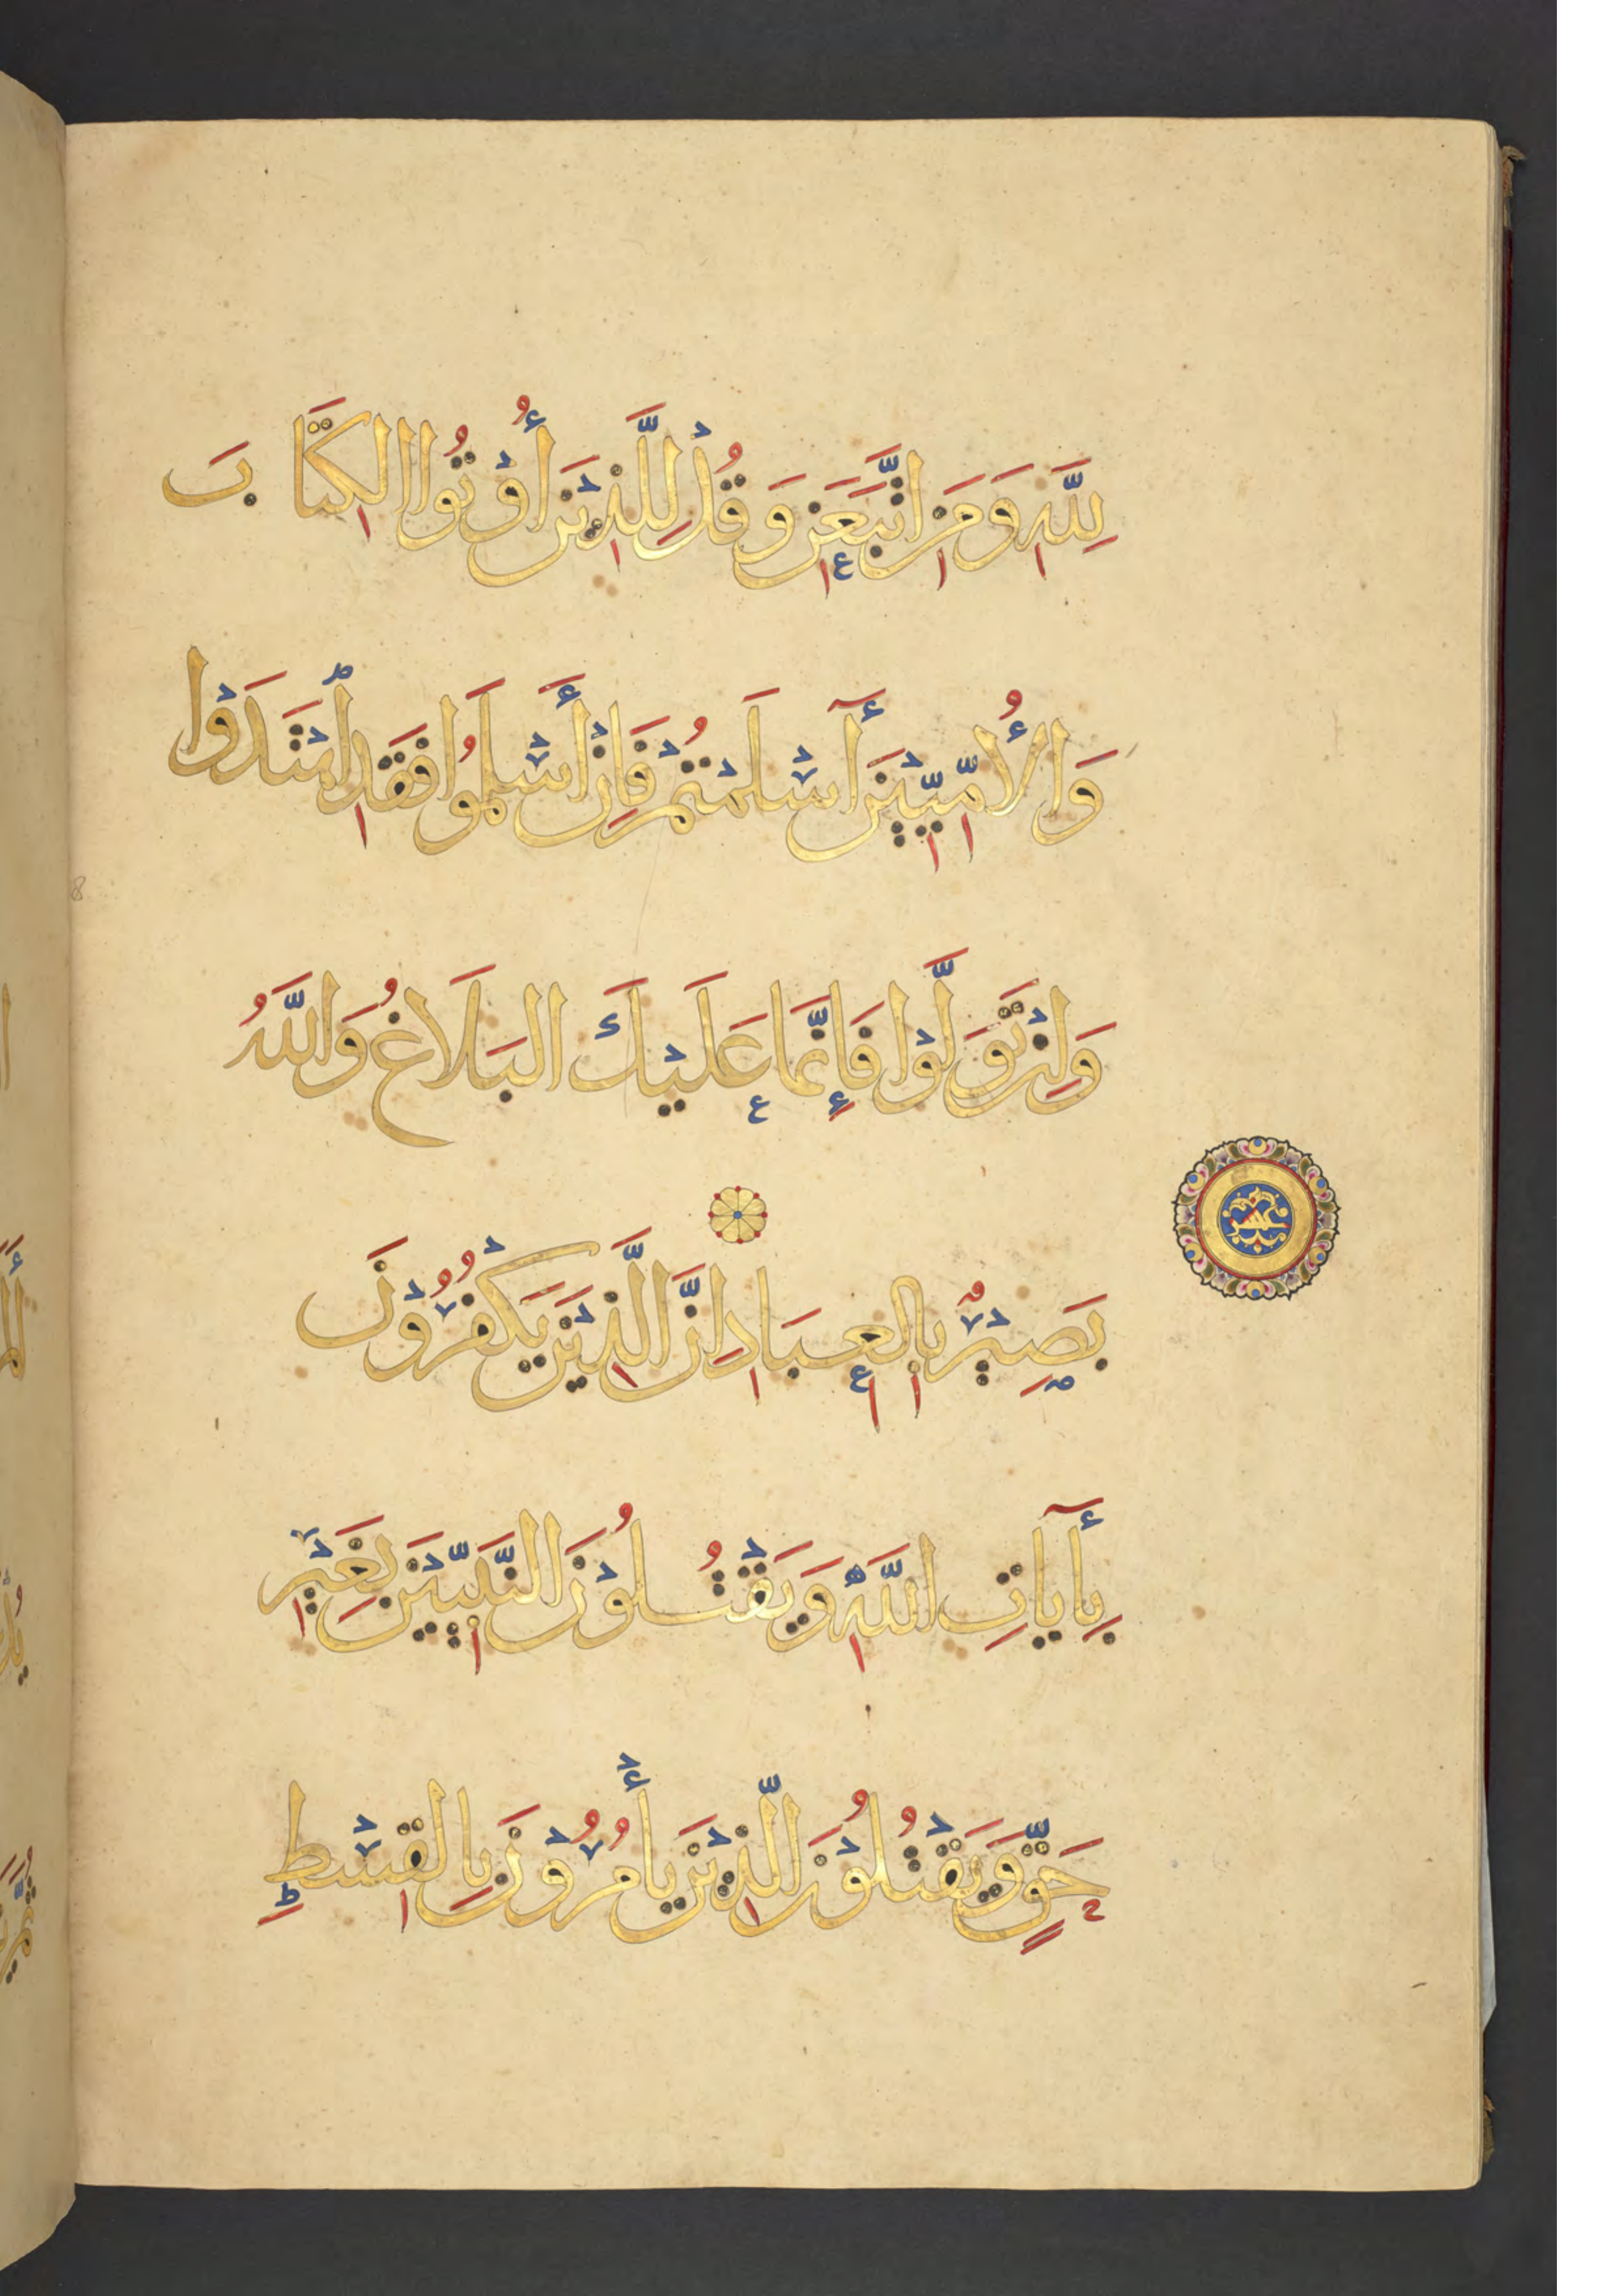 لِلَّهِ وَمَنِ اتَّبَعَنِ وَقُلْ لِلَّذِينَ أُوْتُوا الكِتَابَ
وَالأُمِّيِّيْنَ أَآسْلَمْتُمْ فَإِنْ أَسْلَمُوا فَقَدِ اهْتَدَوْا
وَإِنْ تَوَلَّوْا فَإِنَّمَا عَلَيْكَ البَلَاغُ وَاللَّهُ
عشر
بَصِيْرٌ بِالعِبَادِ إِنَّ الَّذِيْنَ يَكْفُرُوْنَ
بِأَايَاتِ اللَّهِ وَيَقْتُلُوْنَ النَّبِيِّيْنَ بِغَيْرِ
حَقٍّ وَيَقْتُلُوْنَ الَّذِيْنَ يَأْمُرُوْنَ بِالقِسْطِ